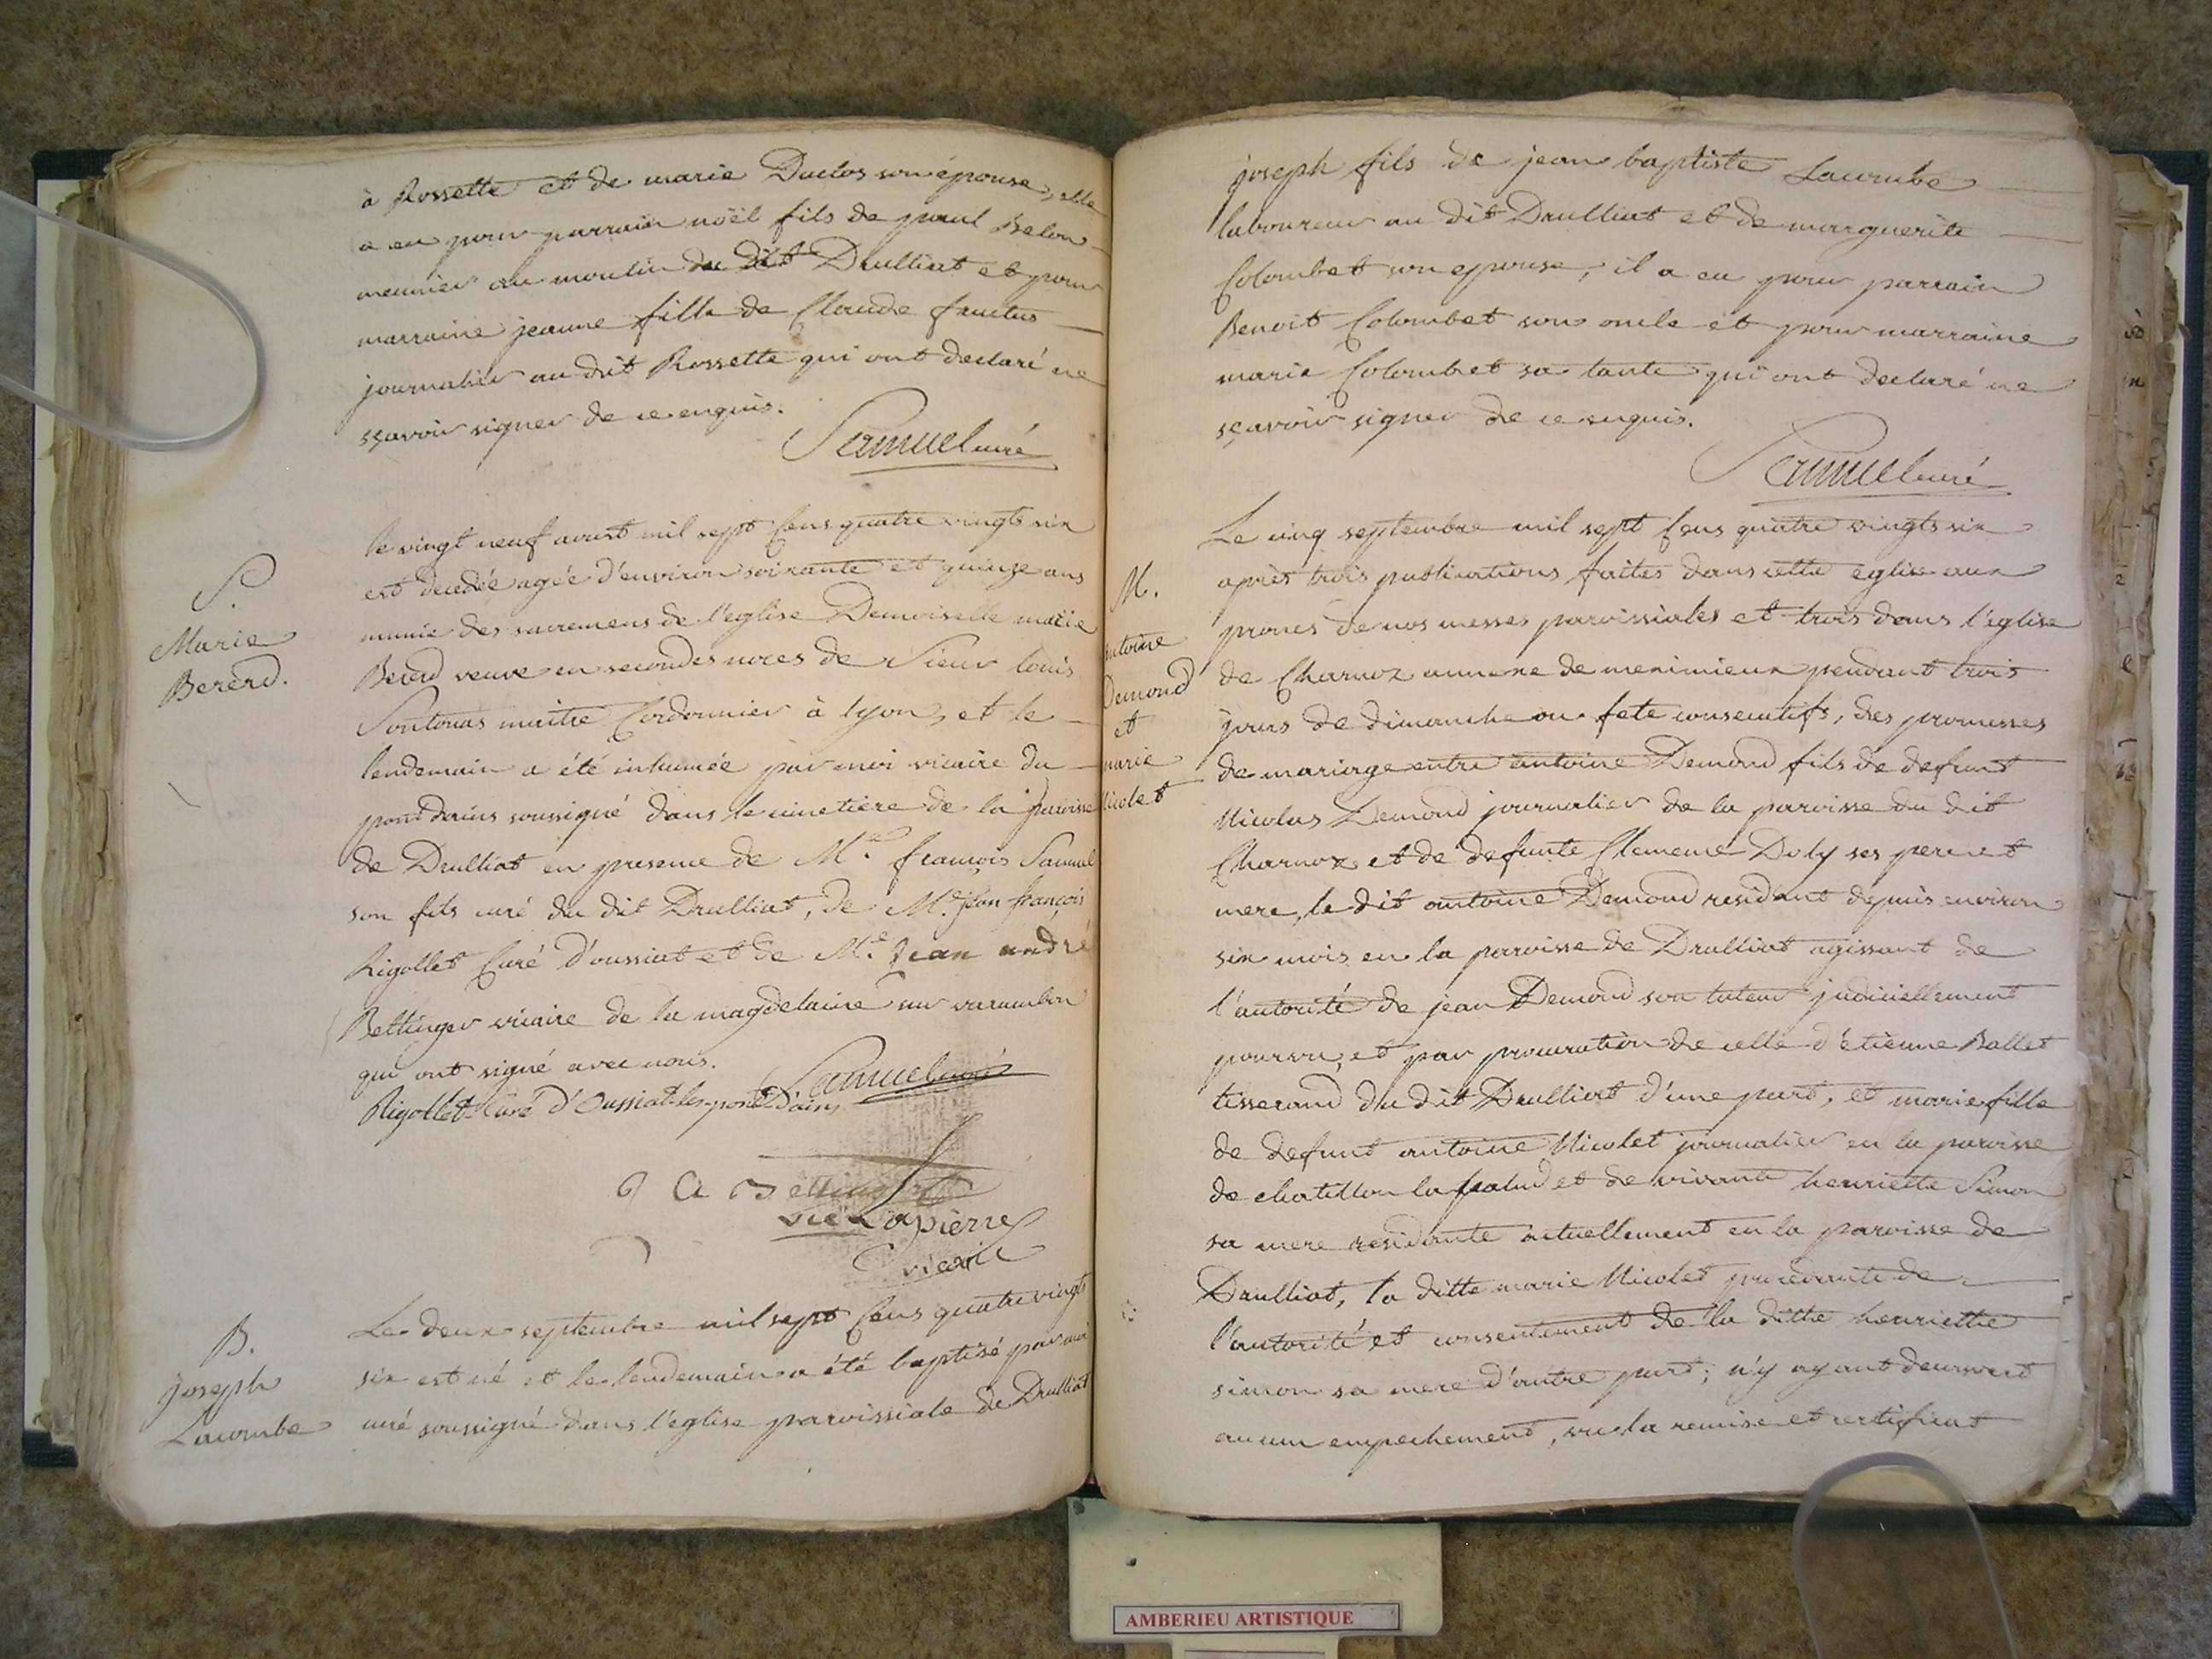 à Rossette et de marie Duclos son épouse, elle
a eu pour parrain noël fils de paul Belon
meunier au moulin du dit Drulliat et pour
marraine jeanne fille de Claude fructus
journalier au dit Rossette qui ont declaré ne
sçavoir signer de ce enquis.
Samuel curé
S.
Marie
Bererd.
le vingt neuf aoust mil sept Cens quatre vingts six
est decedée agée d'environ soixante et quinze ans
munie des sacremens de l'eglise Demoiselle marie
Bererd veuve en secondes noces de Sieur louis
Sontonas maitre Cordonnier à lyon, et le
lendemain a été inhumée par moi vicaire du
pont dains soussigné dans le cimetiere de la paroisse
de Drulliat en presence de Mre françois Samuel
son fils curé du dit Drulliat, de Mre jean françois
Rigollet Curé d'oussiat et de Mre Jean andré
Bettinger vicaire de la magdelaine sur varambon
qui ont signé avec nous.
Samuel curé
Rigollet Curé d'Oussiat-les-pont-D'ains
J A Bettinger
vic.
Lapierre
vicaire
B.
joseph
Lacombe
Le deux septembre mil sept Cens quatre vingts
six est né et le lendemain a été baptisé par moi
curé soussigné dans l'eglise paroissiale de Drulliat
joseph fils de jean baptiste Lacombe
laboureur au dit Drulliat et de marguerite
Colombet son epouse, il a eu pour parrain
Benoit Colombet son oncle et pour marraine
marie Colombet sa tante qui ont declaré ne
sçavoir signer de ce enquis.
Samuel curé
M.
antoine
Demond
et
marie
Nicolet
Le cinq septembre mil sept Cens quatre vingts six
après trois publications faites dans cette eglise aux
prones de nos messes paroissiales et trois dans l'église
de Charnoz annexe de meximieux pendant trois
jours de dimanche ou fete consecutifs, des promesses
de mariage entre antoine Demond fils de defunt
Nicolas Demond journalier de la paroisse du dit
Charnoz et de defunte Clemence Doly ses pere et
mere, le dit antoine Demond residant depuis environ
six mois en la paroisse de Drulliat agissant de
l'autorité de jean Demond son tuteur judiciellement
pourvu, et par procuration de celle d'étienne Ballet
tisserand du dit Drulliat d'une part, et marie fille
de defunt antoine Nicolet journalier en la paroisse
de chatillon la palud et de vivante henriette Simon
sa mere residante actuellement en la paroisse de
Drulliat, la ditte marie Nicolet procedante de
l'autorité et consentement de la ditte henriette
simon sa mere d'autre part; n'y ayant decouvert
aucun empechement, vu la remise et certificat
AMBERIEU ARTISTIQUE